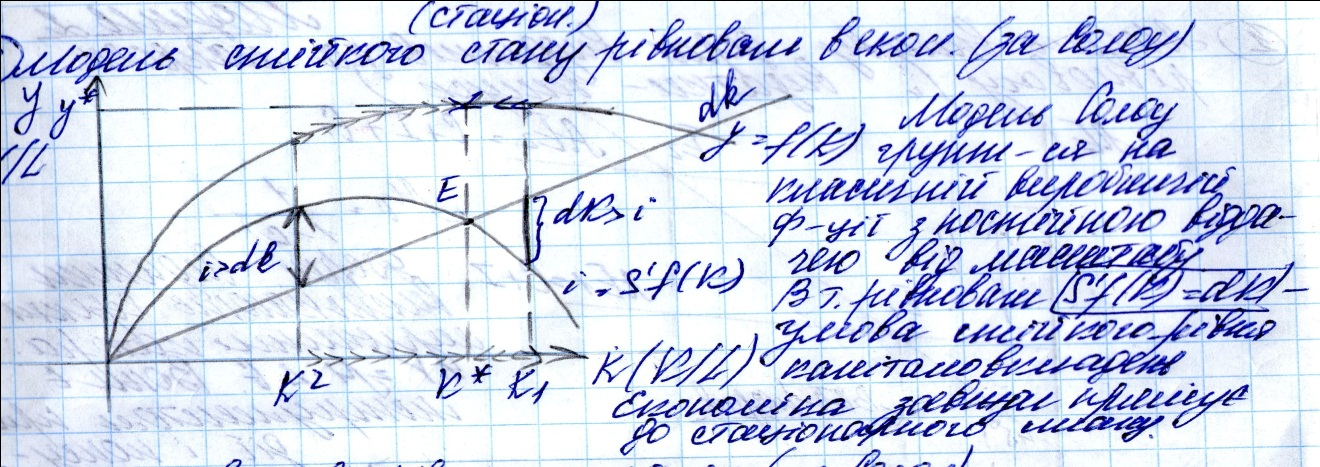 (стаціон.)
Модель стійкого стану рівноваги в екон. (за Солоу)
y y*
/L
dk
y = f(k)
E
i>dk
} dk>i
i = S'f(k)
K2 K* K1 k (K/L)
Модель Солоу
грунт-ся на
класичній виробничій
ф-ції з постійною відда-
чею від масштабу
В т. рівноваги S'f(k)=dk -
умова стійкого рівня
капіталовкладень
Економіка завжди прямує
до стаціонарного стану.